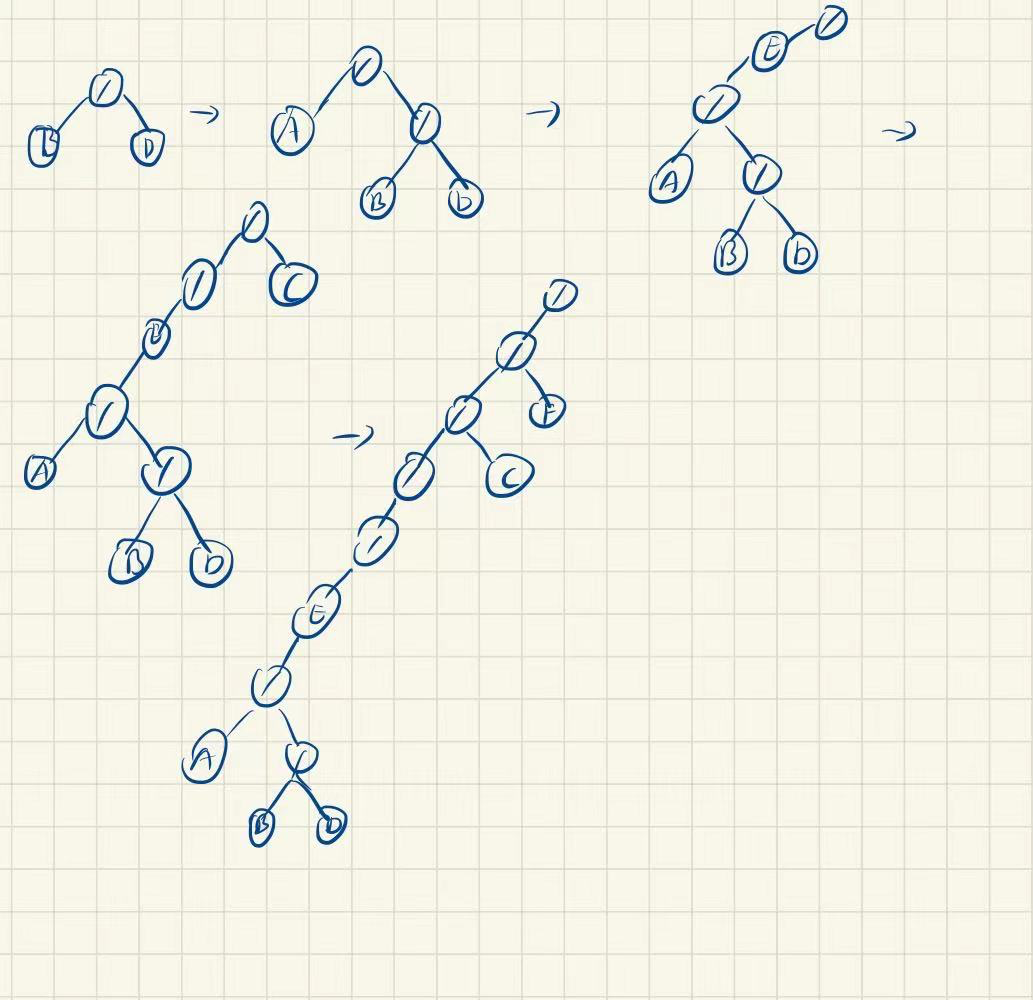 /
B D
→
/
A /
B D
→
/
E
/
A /
B D
→
/
/ C
/
A /
B D
→
/
/
/ F
/ C
/
E
/
A /
B D